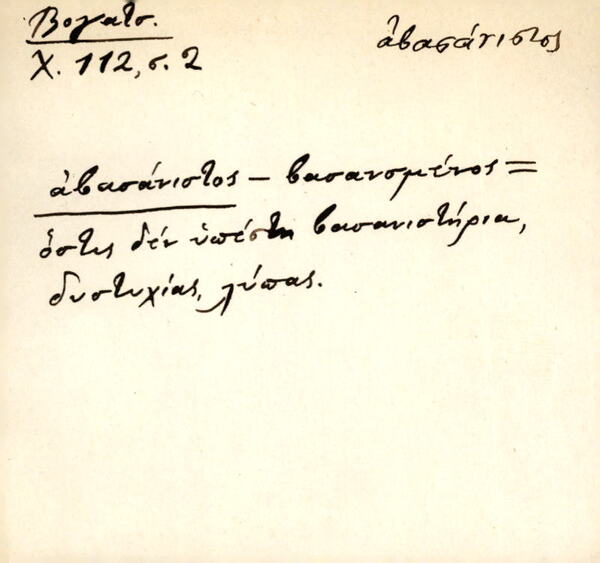 Βογατσ.
ἀβασάνιστος
Χ. 112, σ. 2
ἀβασάνιστος – βασανσμένος =
ὅστις δέν ὑπέστη βασανιστήρια,
δυστυχίας, λύπας.